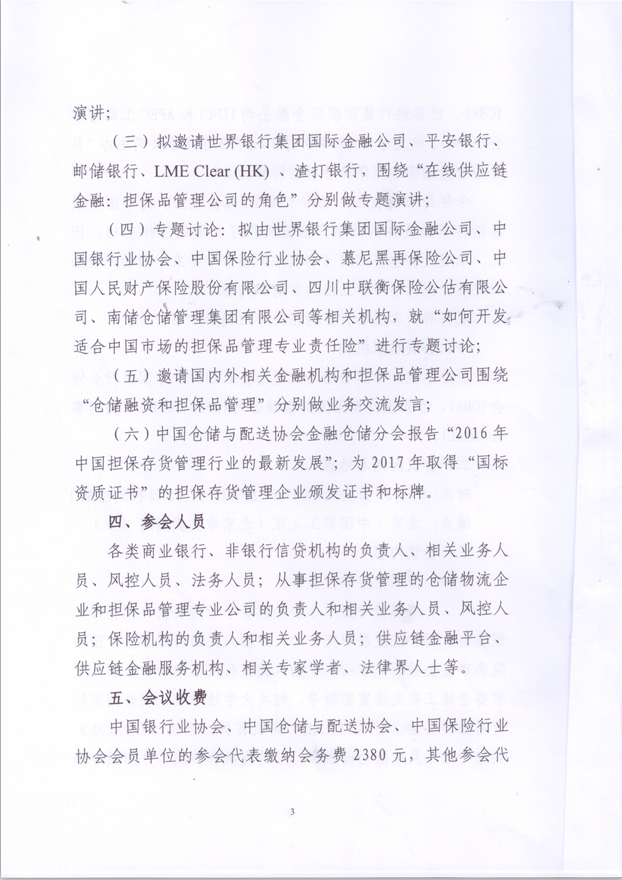 演讲；
（三）拟邀请世界银行集团国际金融公司、平安银行、
邮储银行、LME Clear (HK) 、渣打银行，围绕“在线供应链
金融：担保品管理公司的角色”分别做专题演讲；
（四）专题讨论：拟由世界银行集团国际金融公司、中
国银行业协会、中国保险行业协会、慕尼黑再保险公司、中
国人民财产保险股份有限公司、四川中联衡保险公估有限公
司、南储仓储管理集团有限公司等相关机构，就“如何开发
适合中国市场的担保品管理专业责任险”进行专题讨论；
（五）邀请国内外相关金融机构和担保品管理公司围绕
“仓储融资和担保品管理”分别做业务交流发言；
（六）中国仓储与配送协会金融仓储分会报告“2016 年
中国担保存货管理行业的最新发展”；为 2017 年取得“国标
资质证书”的担保存货管理企业颁发证书和标牌。
四、参会人员
各类商业银行、非银行信贷机构的负责人、相关业务人
员、风控人员、法务人员；从事担保存货管理的仓储物流企
业和担保品管理专业公司的负责人和相关业务人员、风控人
员；保险机构的负责人和相关业务人员；供应链金融平台、
供应链金融服务机构、相关专家学者、法律界人士等。
五、会议收费
中国银行业协会、中国仓储与配送协会、中国保险行业
协会会员单位的参会代表缴纳会务费 2380 元，其他参会代
3